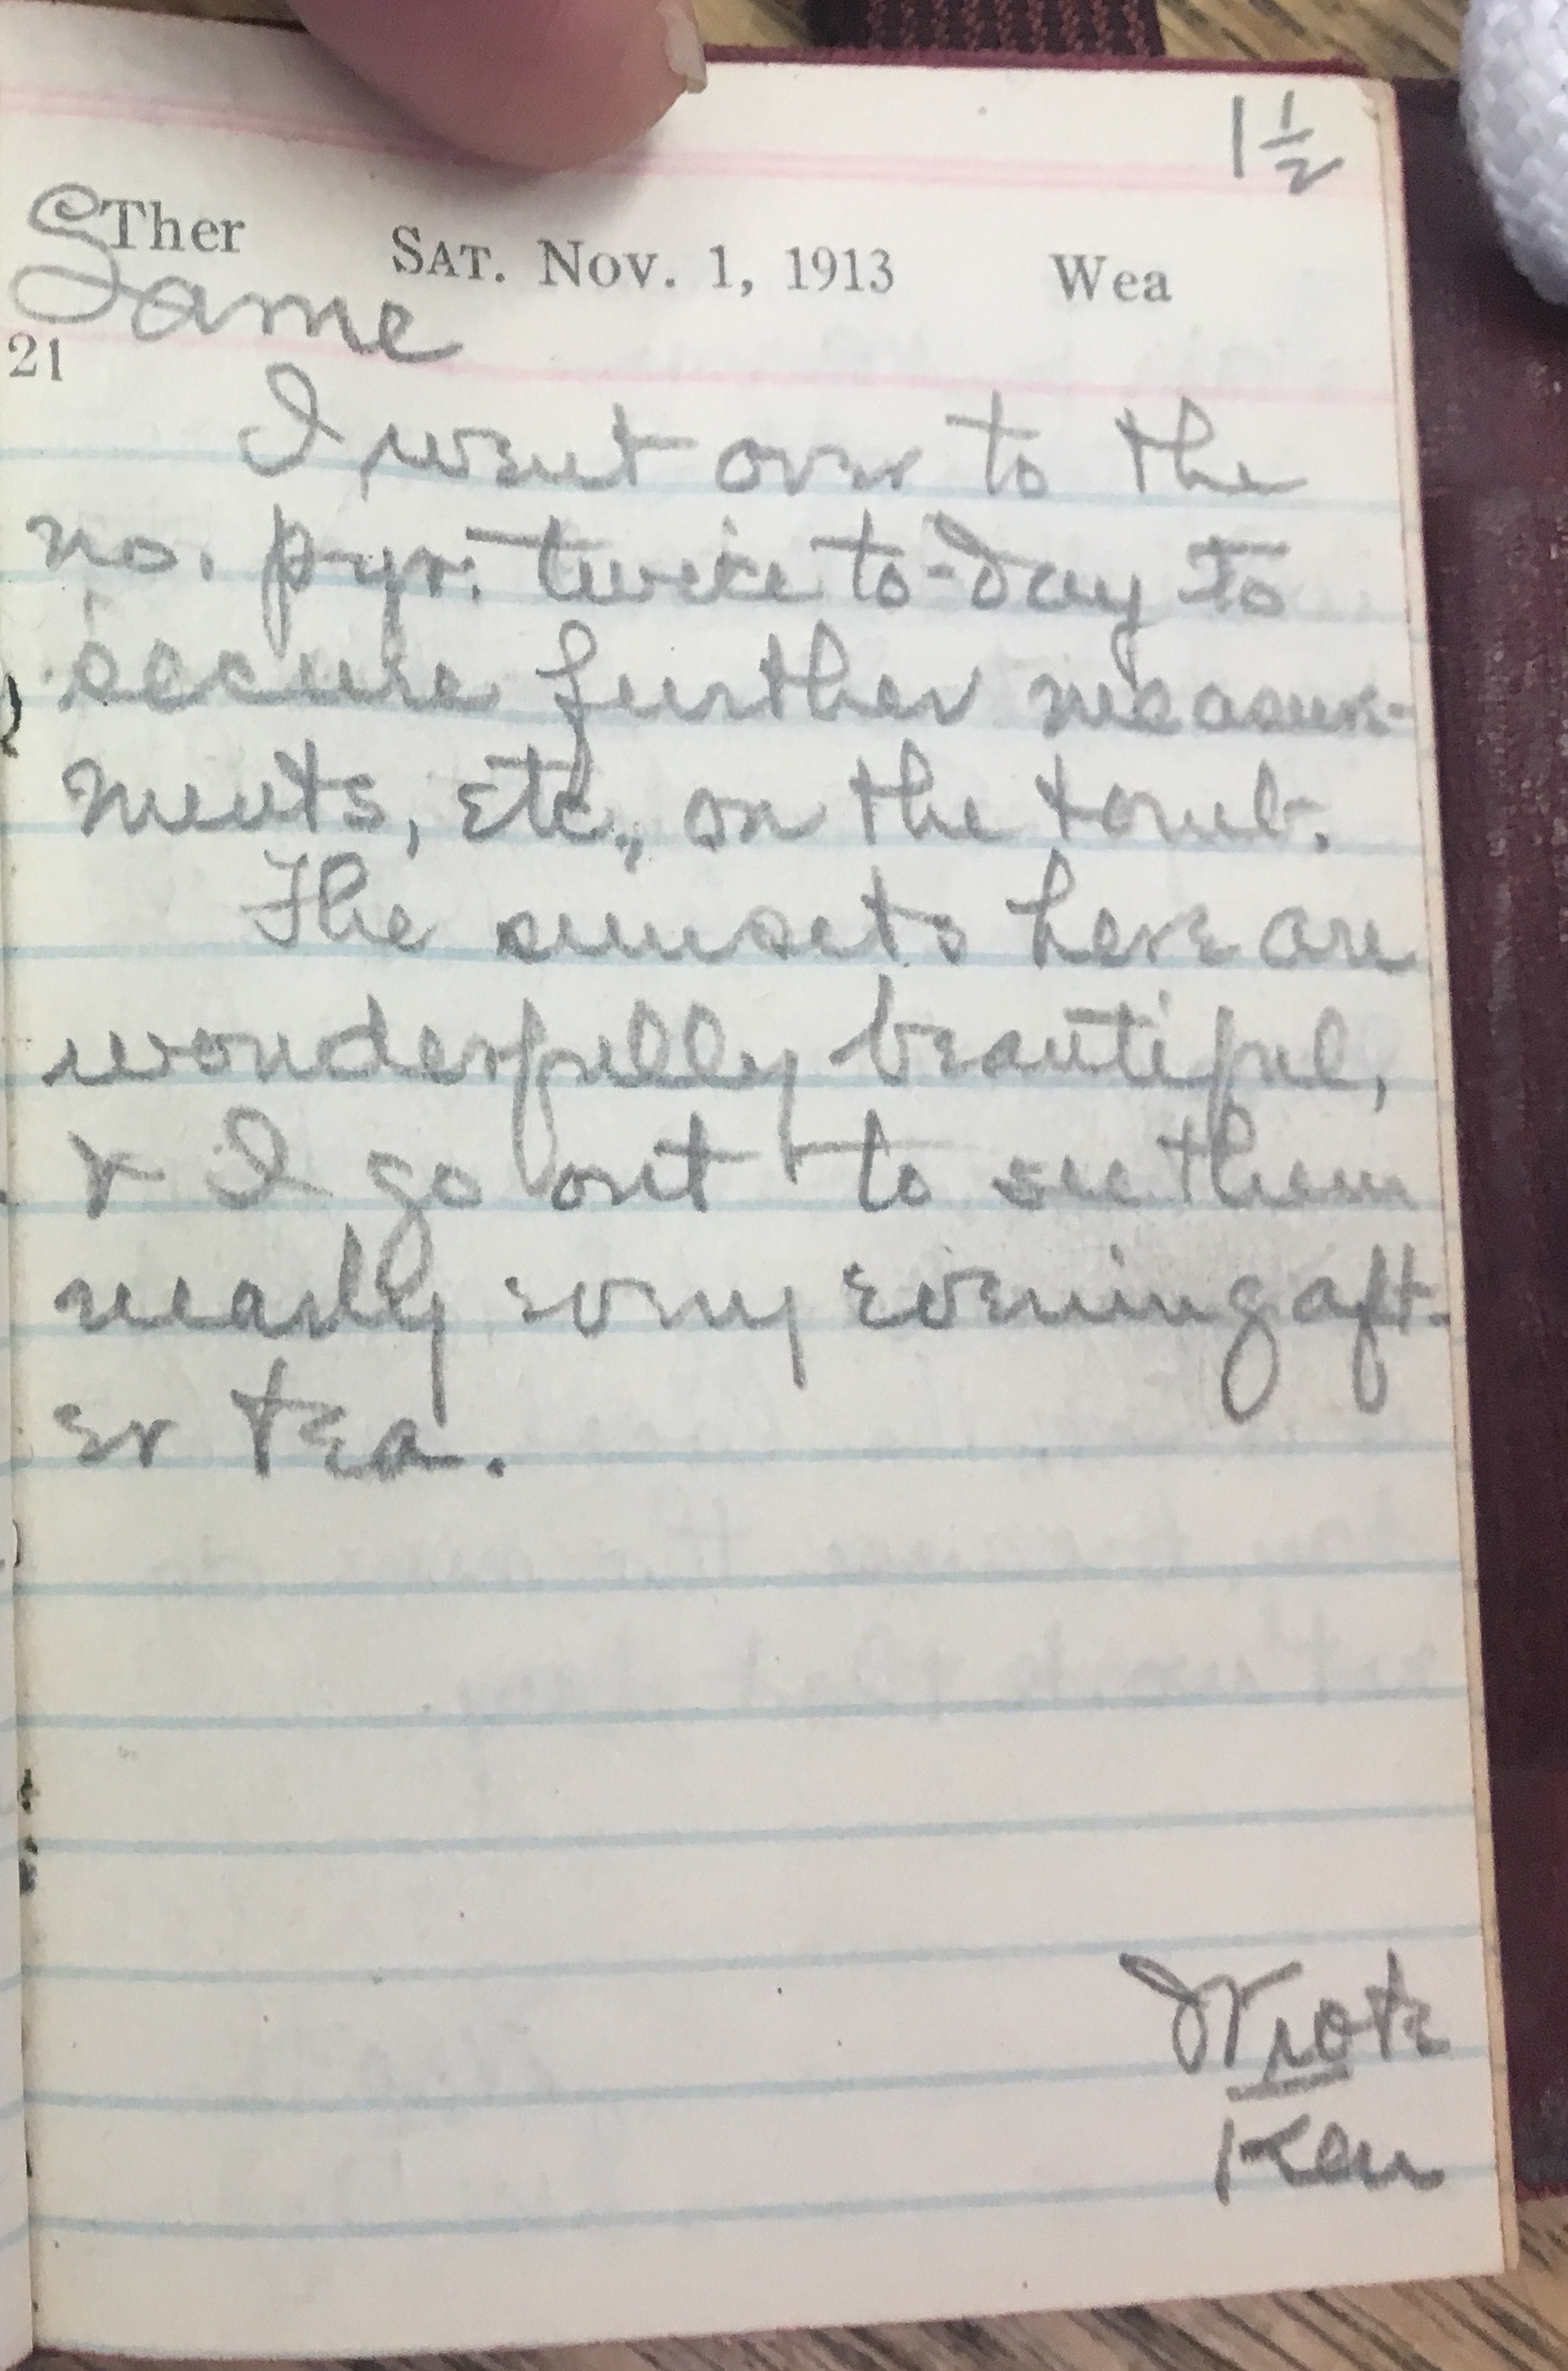 1 1/2
Ther SAT. Nov. 1, 1913 Wea
Same
21
I went over to the
no. pyr. twice to-day to
secure further measure-
ments, etc., on the tomb.
The sunsets here are
wonderfully beautiful,
& I go out to see them
nearly every evening aft-
er tea.
Wrote
Ken